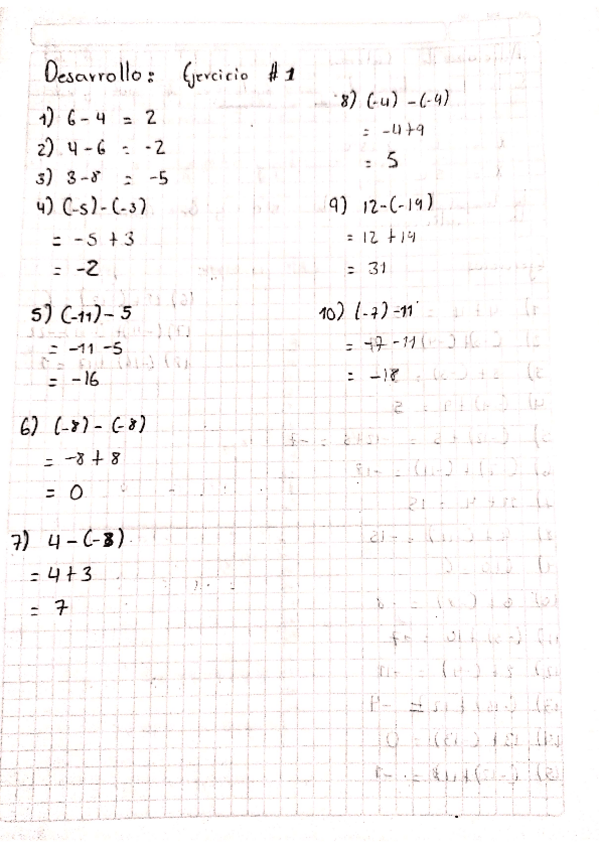 Desarrollo: Ejercicio #1
1) 6-4 = 2
2) 4-6 = -2
3) 3-8 = -5
4) (-5)-(-3)
= -5+3
= -2
5) (-11)-5
= -11-5
= -16
6) (-8)-(-8)
= -8+8
= 0
7) 4-(-3)
= 4+3
= 7
8) (-4)-(-9)
= -4+9
= 5
9) 12-(-19)
= 12+19
= 31
10) (-7)-11
= -7-11
= -18